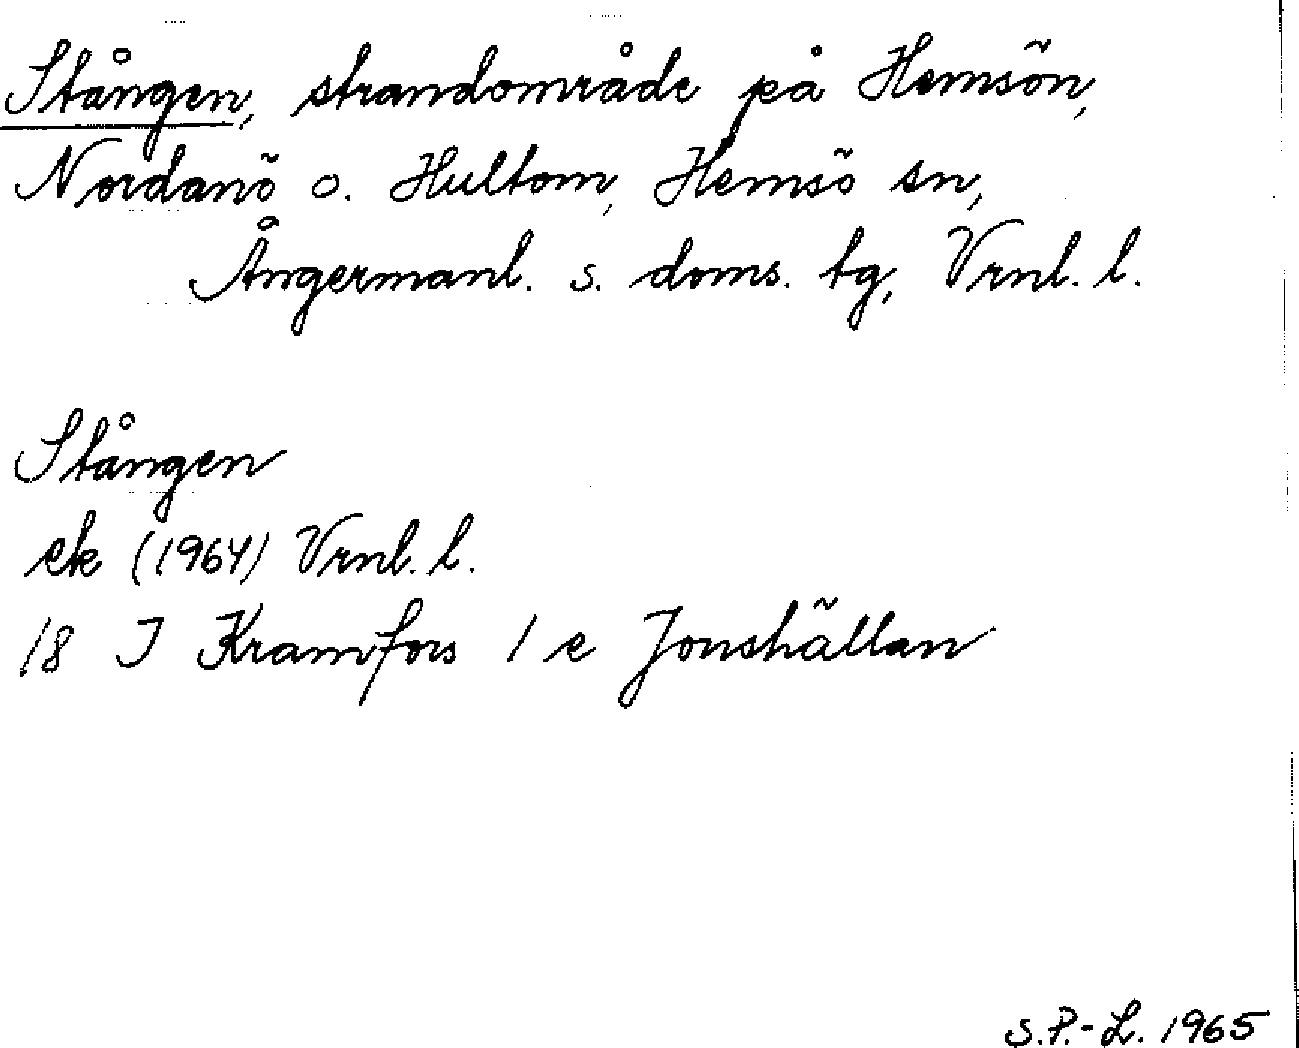 Stången, strandområde på Hemsön,
Nordanö o. Hultom, Hemsö sn,
Ångermanl. s. doms. tg, Vrnl. l.
Stången
ek (1964) Vrnl. l.
18 I Kramfors 1 e Jonshällan
S.P.-L. 1965